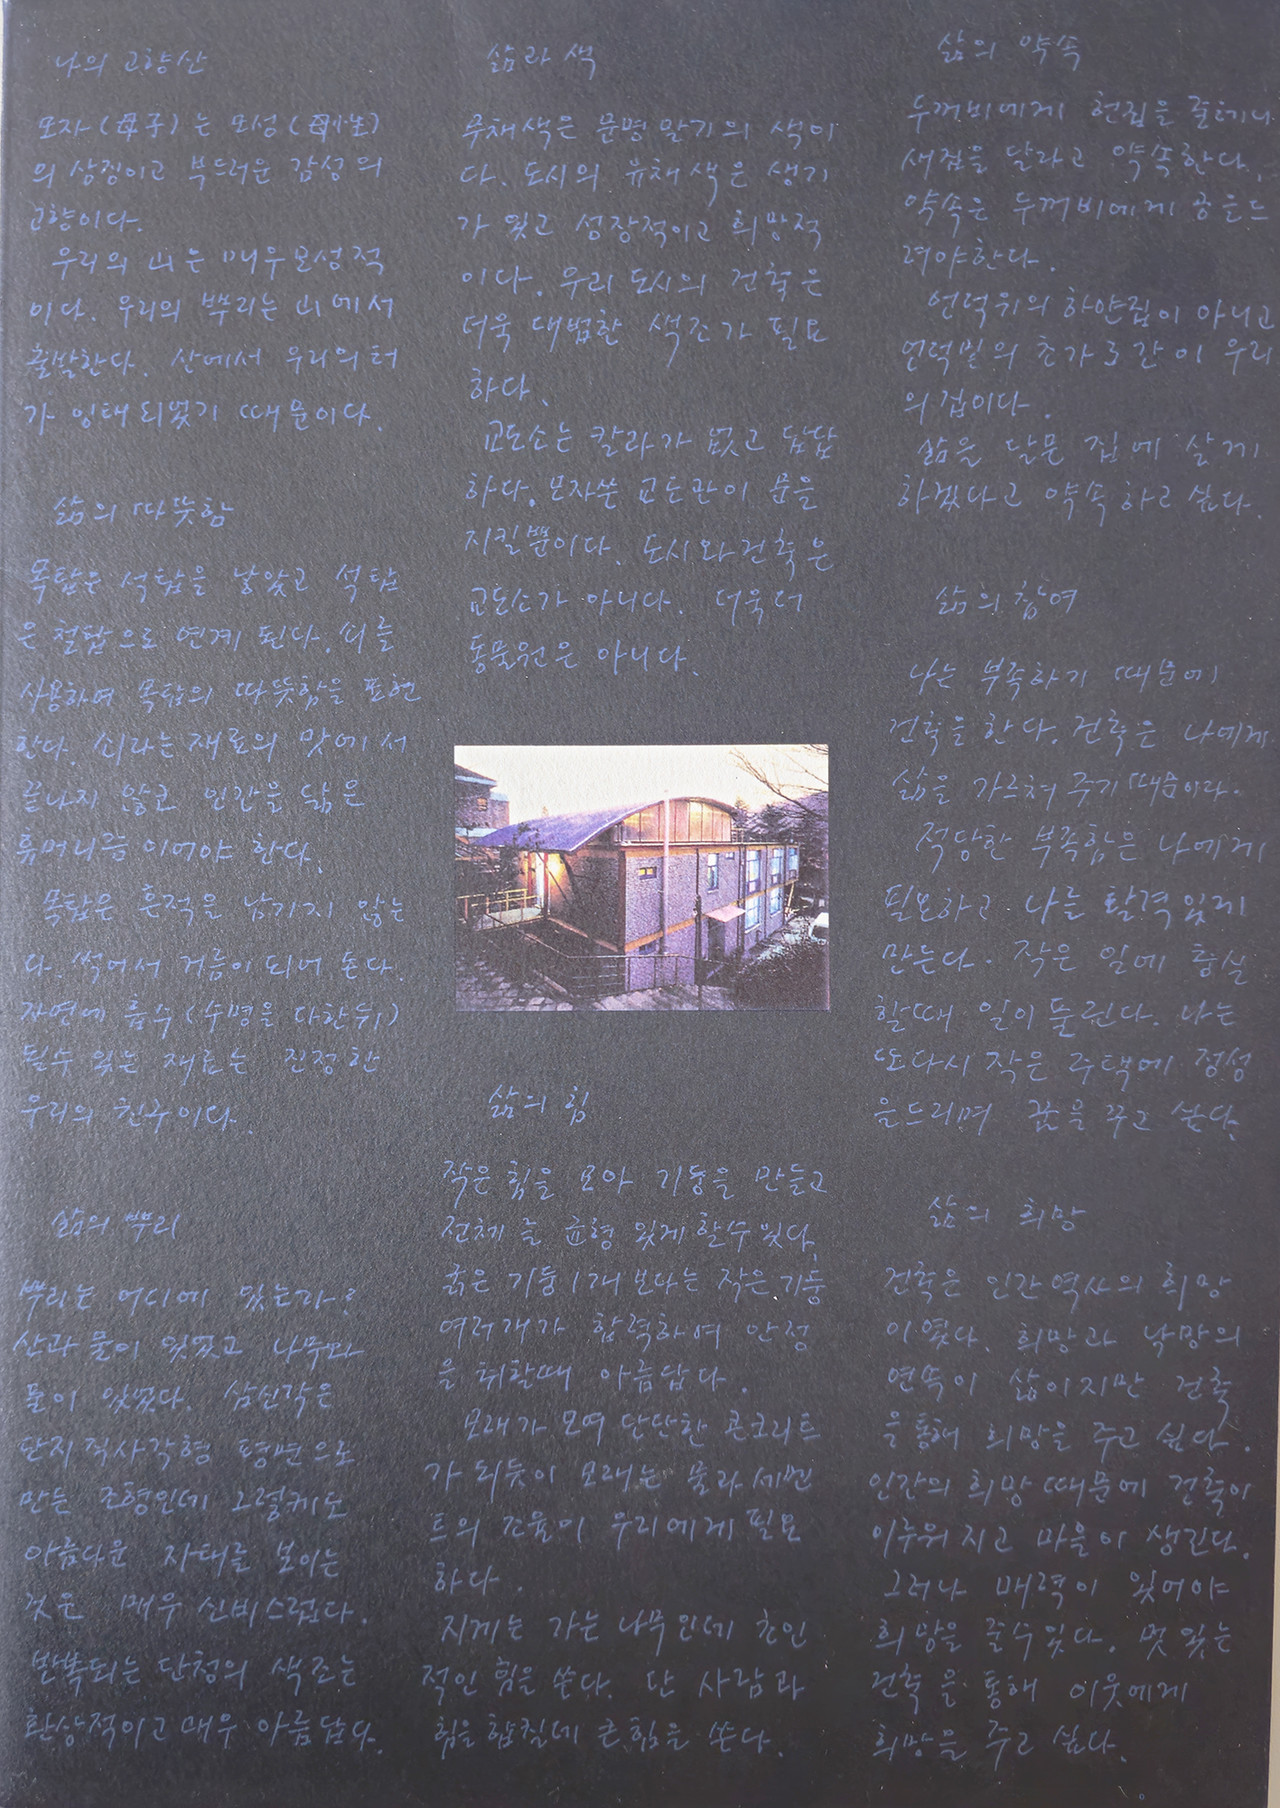 나의 고향산
모자(母子)는 모성(母性)
의 상징이고 부드러운 감성의
고향이다.
우리의 山는 매우 모성적
이다. 우리의 뿌리는 山에서
출발한다. 산에서 우리의 터
가 잉태되었기 때문이다.
삶의 따뜻함
목탑은 석탑을 낳았고 석탑
은 철탑으로 연계 된다. 쇠를
사용하며 목탑의 따뜻함을 표현
한다. 쇠라는 재료의 맛에서
끝나지 않고 인간을 닮은
휴머니즘이어야 한다.
목탑은 흔적을 남기지 않는
다. 썩어서 거름이 되어 돈다.
자연에 흡수(수명을 다한뒤)
될수 있는 재료는 진정한
우리의 친구이다.
삶의 뿌리
뿌리는 어디에 있는가?
산과 물이 있었고 나무와
돌이 있었다. 삼신각은
단지 직사각형 평면으로
만든 조형인데 그렇게도
아름다운 자태를 보이는
것은 매우 신비스럽다.
반복되는 단청의 색조는
환상적이고 매우 아름답다.
삶과 색
무채색은 문명 말기의 색이
다. 도시의 유채색은 생기
가 있고 성장적이고 희망적
이다. 우리 도시의 건축은
더욱 대범한 색조가 필요
하다.
교도소는 칼라가 없고 답답
하다. 모자쓴 교도관이 문을
지킬뿐이다. 도시와 건축은
교도소가 아니다. 더욱더
동물원은 아니다.
삶의 힘
작은 힘을 모아 기둥을 만들고
전체를 균형 있게 할수있다.
굵은 기둥 1개 보다는 작은 기둥
여러개가 합력하여 안정
을 취할때 아름답다.
모래가 모여 단단한 콘크리트
가 되듯이 모래는 물과 세멘
트의 조율이 우리에게 필요
하다.
지게는 가는 나무인데 초인
적인 힘을 쓴다. 단 사람과
힘을 합칠데 큰 힘을 쓴다.
삶의 약속
두꺼비에게 헌집을 줄테니
새집을 달라고 약속한다.
약속은 두꺼비에게 공을드
려야한다.
언덕위의 하얀집이 아니고
언덕밑의 초가 3간이 우리
의 집이다.
삶을 닮은 집에 살게
하겠다고 약속하고 싶다.
삶의 참여
나는 부족하기 때문에
건축을 한다. 건축은 나에게
삶을 가르쳐 주기 때문이다.
적당한 부족함은 나에게
필요하고 나를 활력있게
만든다. 작은 일에 충실
할때 일이 풀린다. 나는
또다시 작은 주택에 정성
을드리며 꿈을 꾸고 싶다.
삶의 희망
건축은 인간역사의 희망
이였다. 희망과 낙망의
연속이 삶이지만 건축
을통해 희망을 주고 싶다.
인간의 희망 때문에 건축이
이루워지고 마을이 생긴다.
그러나 매력이 있어야
희망을 줄수있다. 멋있는
건축을 통해 이웃에게
희망을 주고 싶다.